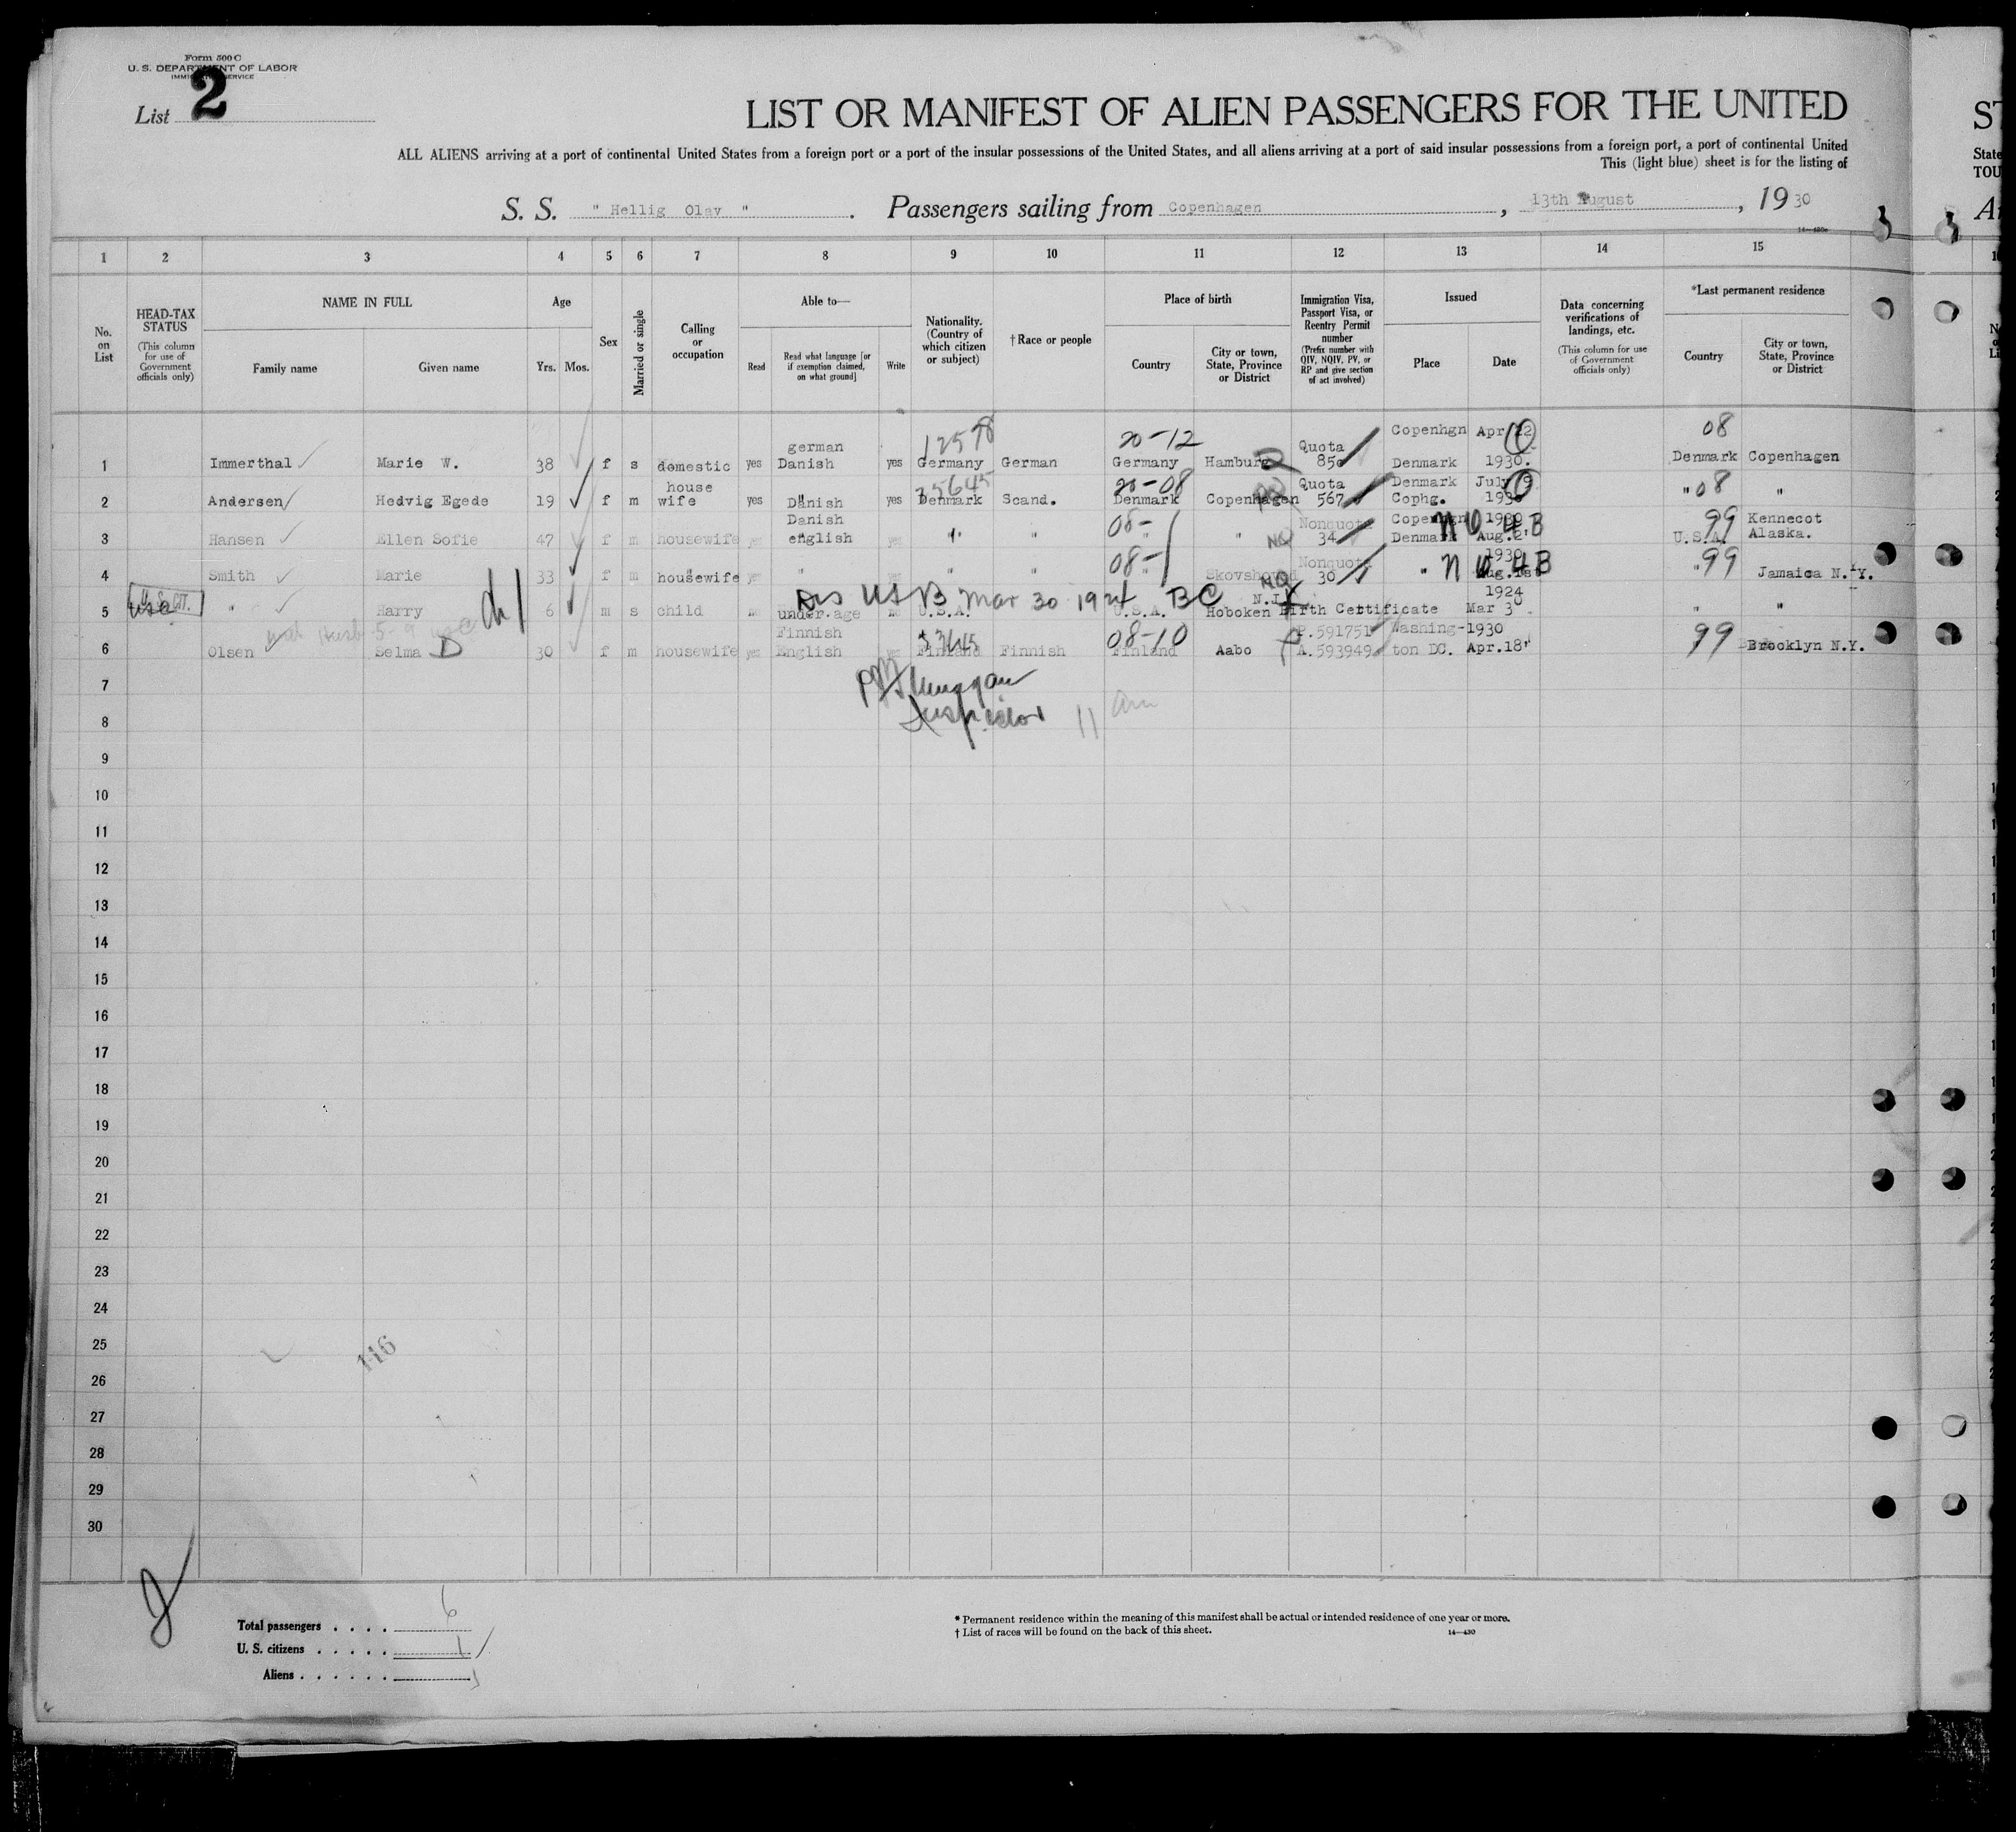 Form 500 C
U. S. DEPARTMENT OF LABOR
IMMIGRATION SERVICE
List 2
LIST OR MANIFEST OF ALIEN PASSENGERS FOR THE UNITED
ST
ALL ALIENS arriving at a port of continental United States from a foreign port or a port of the insular possessions of the United States, and all aliens arriving at a port of said insular possessions from a foreign port, a port of continental United
State
This (light blue) sheet is for the listing of
TOU
S. S. " Hellig Olav " . Passengers sailing from Copenhagen , 13th August , 1930
1 2 3 4 5 6 7 8 9 10 11 12 13 14 15
No. on List
HEAD-TAX STATUS (This column for use of Government officials only)
NAME IN FULL
Family name Given name
Age
Yrs. Mos.
Sex
Married or single
Calling or occupation
Able to—
Read
Read what language [or if exemption claimed, on what ground]
Write
Nationality. (Country of which citizen or subject)
† Race or people
Place of birth
Country
City or town, State, Province or District
Immigration Visa, Passport Visa, or Reentry Permit number (Prefix number with QIV, NQIV, PV, or RP and give section of act involved)
Issued
Place Date
Data concerning verifications of landings, etc. (This column for use of Government officials only)
*Last permanent residence
Country
City or town, State, Province or District
german 20-12 Quota Copenhgn Apr 22 08
1 Immerthal Marie W. 38 f s domestic yes Danish yes Germany German Germany Hamburg 850 Denmark 1930. Denmark Copenhagen
house 20-08 Quota Denmark July 9
2 Andersen Hedvig Egede 19 f m wife yes Danish yes Denmark Scand. Denmark Copenhagen 567 Cophg. 1930 " 08 "
Danish 08- Nonquota Copenhgn 1930 99 Kennecot
3 Hansen Ellen Sofie 47 f m housewife yes english yes " " " " NQ 34 Denmark Aug.2 U.S.A. Alaska.
08- Nonquota 1930 99
4 Smith Marie 33 f m housewife yes " yes " " " Skovshoved NQ 30 " Jamaica N.Y.
U.S. CIT. USB Mar 30 1924 BC N.J. 1924
5 usc " Harry 6 m s child no under age no U.S.A. U.S.A. Hoboken Birth Certificate Mar 30 " "
Finnish 08-10 P.591751 Washing- 1930 99
6 Olsen Selma D 30 f m housewife yes English yes Finland Finnish Finland Aabo A.593949 ton DC. Apr.18 Brooklyn N.Y.
7
Inspector
8
9
10
11
12
13
14
15
16
17
18
19
20
21
22
23
24
25
116
26
27
28
29
30
Total passengers . . . . 6
U. S. citizens . . . . . 1
Aliens . . . . . .
* Permanent residence within the meaning of this manifest shall be actual or intended residence of one year or more.
† List of races will be found on the back of this sheet.
14—430